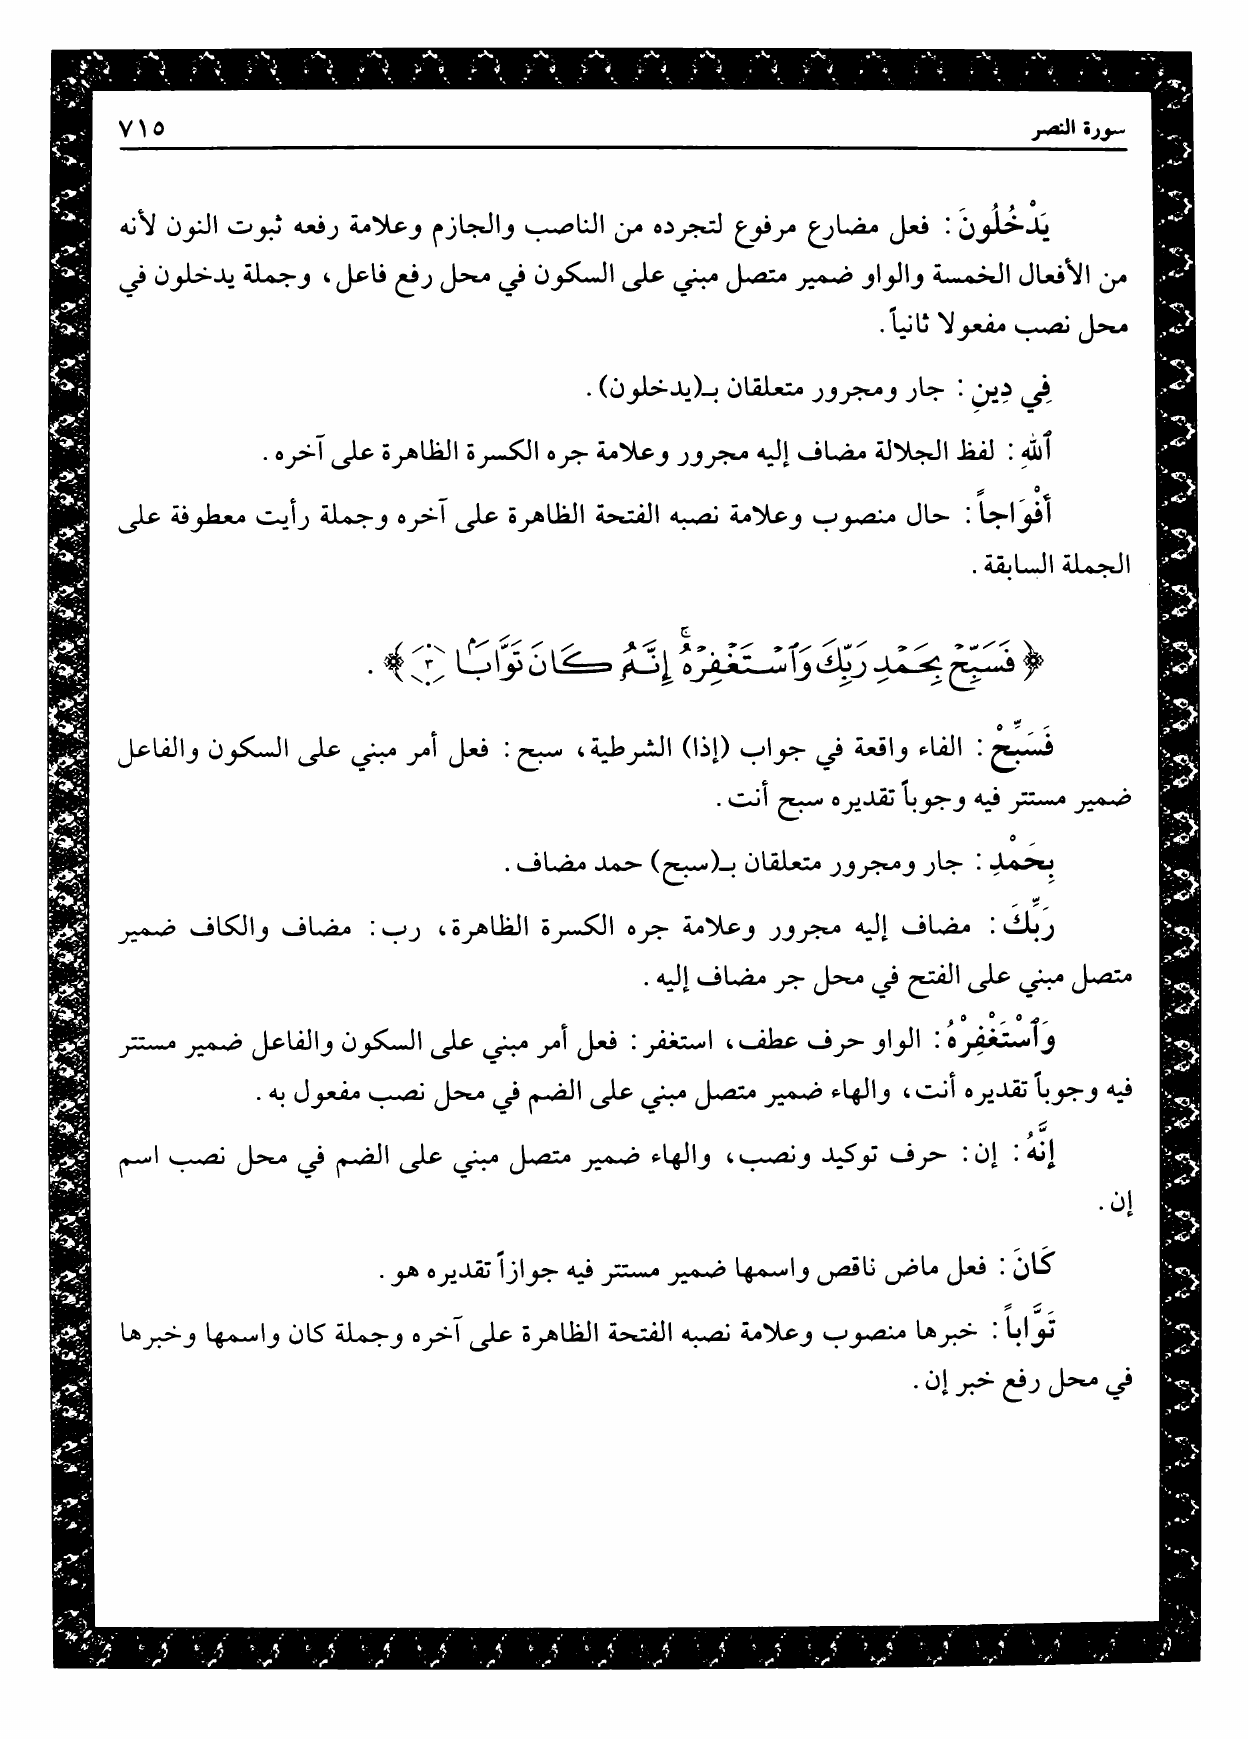 سورة النصر ٧١٥
يَدْخُلُونَ: فعل مضارع مرفوع لتجرده من الناصب والجازم وعلامة رفعه ثبوت النون لأنه
من الأفعال الخمسة والواو ضمير متصل مبني على السكون في محل رفع فاعل، وجملة يدخلون في
محل نصب مفعولا ثانياً.
فِي دِينِ: جار ومجرور متعلقان بـ(يدخلون).
ٱللهِ: لفظ الجلالة مضاف إليه مجرور وعلامة جره الكسرة الظاهرة على آخره.
أَفْوَاجاً: حال منصوب وعلامة نصبه الفتحة الظاهرة على آخره وجملة رأيت معطوفة على
الجملة السابقة.
﴿فَسَبِّحْ بِحَمْدِ رَبِّكَ وَٱسْتَغْفِرْهُ ۚ إِنَّهُۥ كَانَ تَوَّابًۢا ٣﴾.
فَسَبِّحْ: الفاء واقعة في جواب (إذا) الشرطية، سبح: فعل أمر مبني على السكون والفاعل
ضمير مستتر فيه وجوباً تقديره سبح أنت.
بِحَمْدِ: جار ومجرور متعلقان بـ(سبح) حمد مضاف.
رَبِّكَ: مضاف إليه مجرور وعلامة جره الكسرة الظاهرة، رب: مضاف والكاف ضمير
متصل مبني على الفتح في محل جر مضاف إليه.
وَٱسْتَغْفِرْهُ: الواو حرف عطف، استغفر: فعل أمر مبني على السكون والفاعل ضمير مستتر
فيه وجوباً تقديره أنت، والهاء ضمير متصل مبني على الضم في محل نصب مفعول به.
إِنَّهُ: إن: حرف توكيد ونصب، والهاء ضمير متصل مبني على الضم في محل نصب اسم
إن.
كَانَ: فعل ماض ناقص واسمها ضمير مستتر فيه جوازاً تقديره هو.
تَوَّاباً: خبرها منصوب وعلامة نصبه الفتحة الظاهرة على آخره وجملة كان واسمها وخبرها
في محل رفع خبر إن.